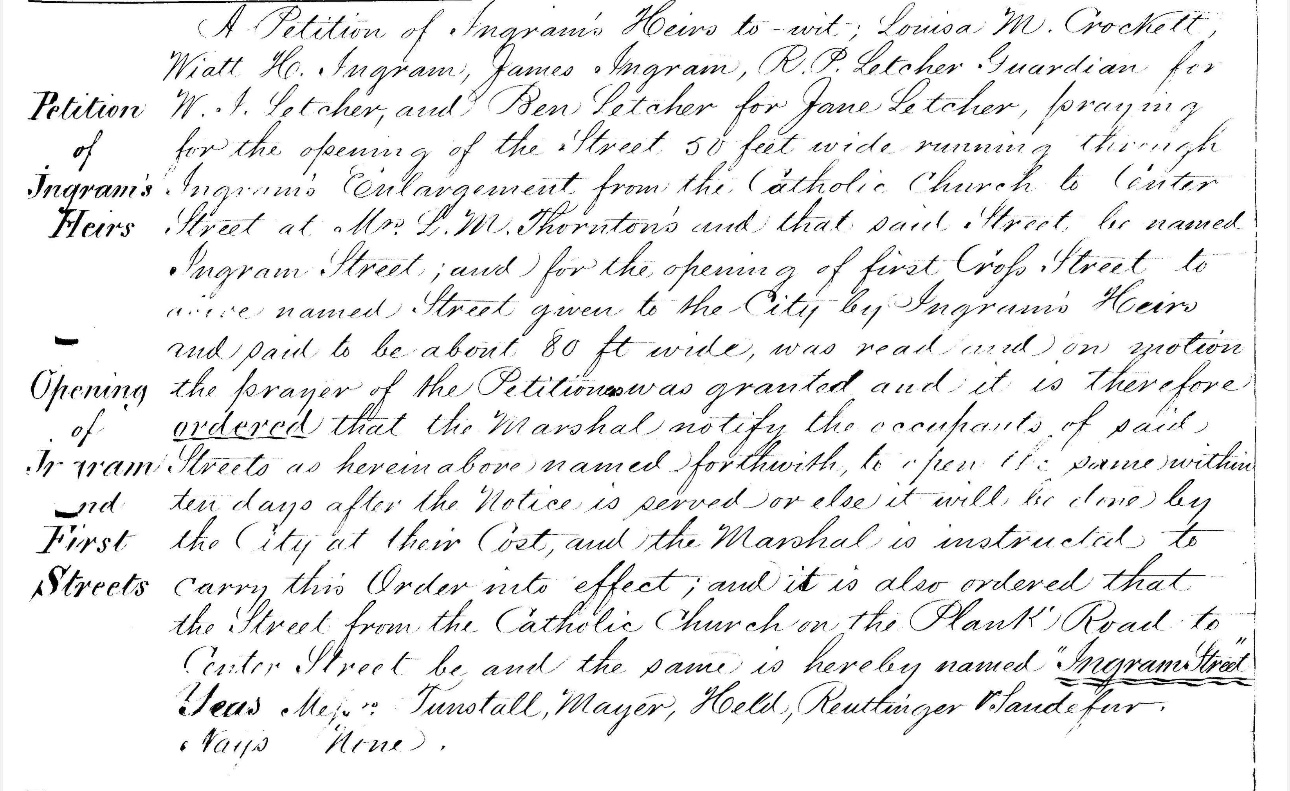 A Petition of Ingram's Heirs to-wit; Louisa M. Crockett,
Wiatt H. Ingram, James Ingram, R. P. Letcher Guardian for
W. I. Letcher, and Ben Letcher for Jane Letcher, praying
for the opening of the Street 50 feet wide running through
Ingram's Enlargement from the Catholic Church to Center
Street at Mrs. L. M. Thornton's and that said Street be named
Ingram Street; and for the opening of first Cross Street to
named Street given to the City by Ingram's Heirs
and said to be about 80 ft wide, was read and on motion
the prayer of the Petitioners was granted and it is therefore
ordered that the Marshal notify the occupants of said
Streets as hereinabove named forthwith, to open the same within
ten days after the Notice is served or else it will be done by
the City at their Cost, and the Marshal is instructed to
carry this Order into effect; and it is also ordered that
the Street from the Catholic Church on the Plank Road to
Center Street be and the same is hereby named "Ingram Street"
Yeas Messrs Tunstall, Mayer, Held, Reuttinger & Sandefur.
Nays None.
Petition
of
Ingram's
Heirs
Opening
of
Ingram
and
First
Streets